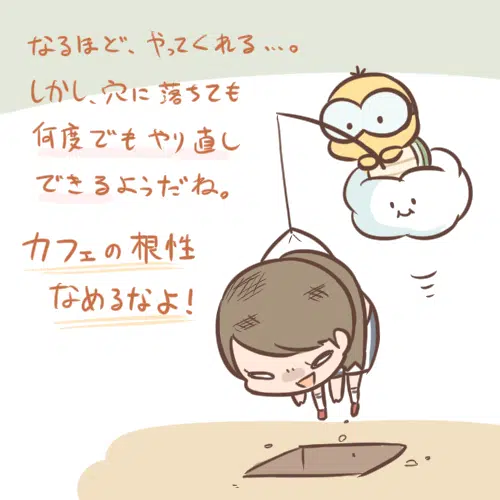 なるほど、やってくれる…。
しかし、穴に落ちても
何度でもやり直し
できるようだね。
カフェの根性
なめるなよ！